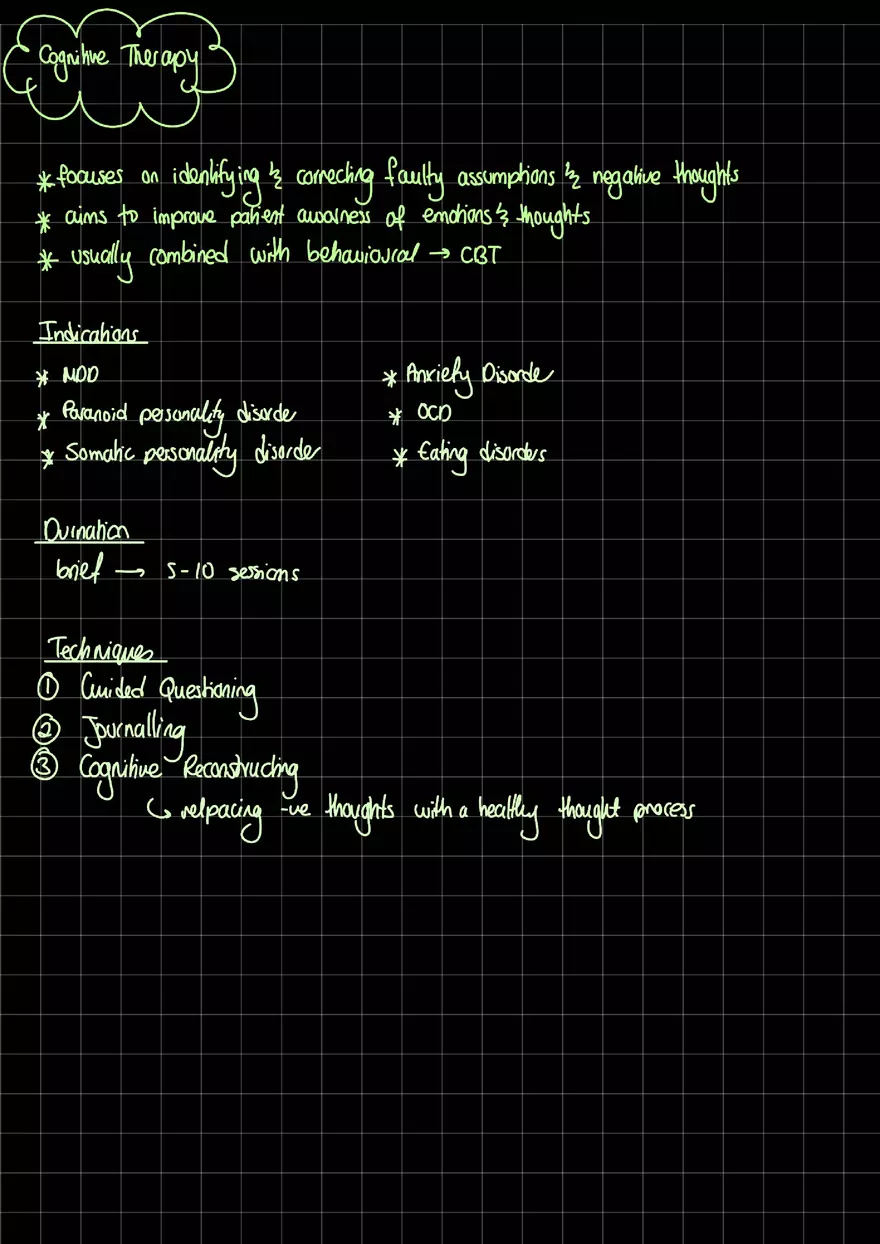 Cognitive Therapy
* focuses on identifying & correcting faulty assumptions & negative thoughts
* aims to improve patient awarness of emotions & thoughts
* usually combined with behavioural → CBT
Indications
* MDD
* Anxiety Disorder
* Paranoid personality disorder
* OCD
* Somatic personality disorder
* Eating disorders
Durnation
brief → 5-10 sessions
Techniques
① Guided Questioning
② Journalling
③ Cognitive Reconstructing
↳ relpacing -ve thoughts with a healthy thought process